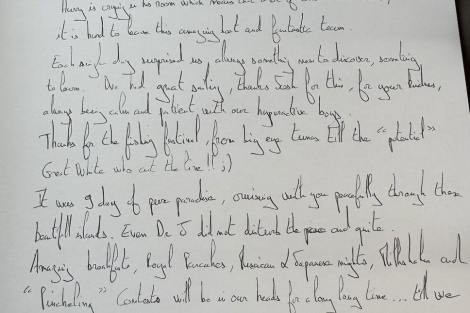 Harry is crying in his room which means that
it is hard to leave this amazing boat and fantastic team.
Each single day surprised us, always something new to discover, something
to learn. We had great sailing, thanks Josh for this, for your kindness,
always being calm and patient with our hyperactive boys.
Thanks for the fishing festival, from big eye tunas till the "potential"
Great White who cut the line!! ;)
It was 9 day of pure paradise, cruising with you peacefully through these
beautifull islands. Even Dr J did not disturb the peace and quite.
Amazing breakfasts, Royal Pancakes, Mexican & Japanese nights, Milkshakes and
" " Contests will be in our heads for a long long time... till we